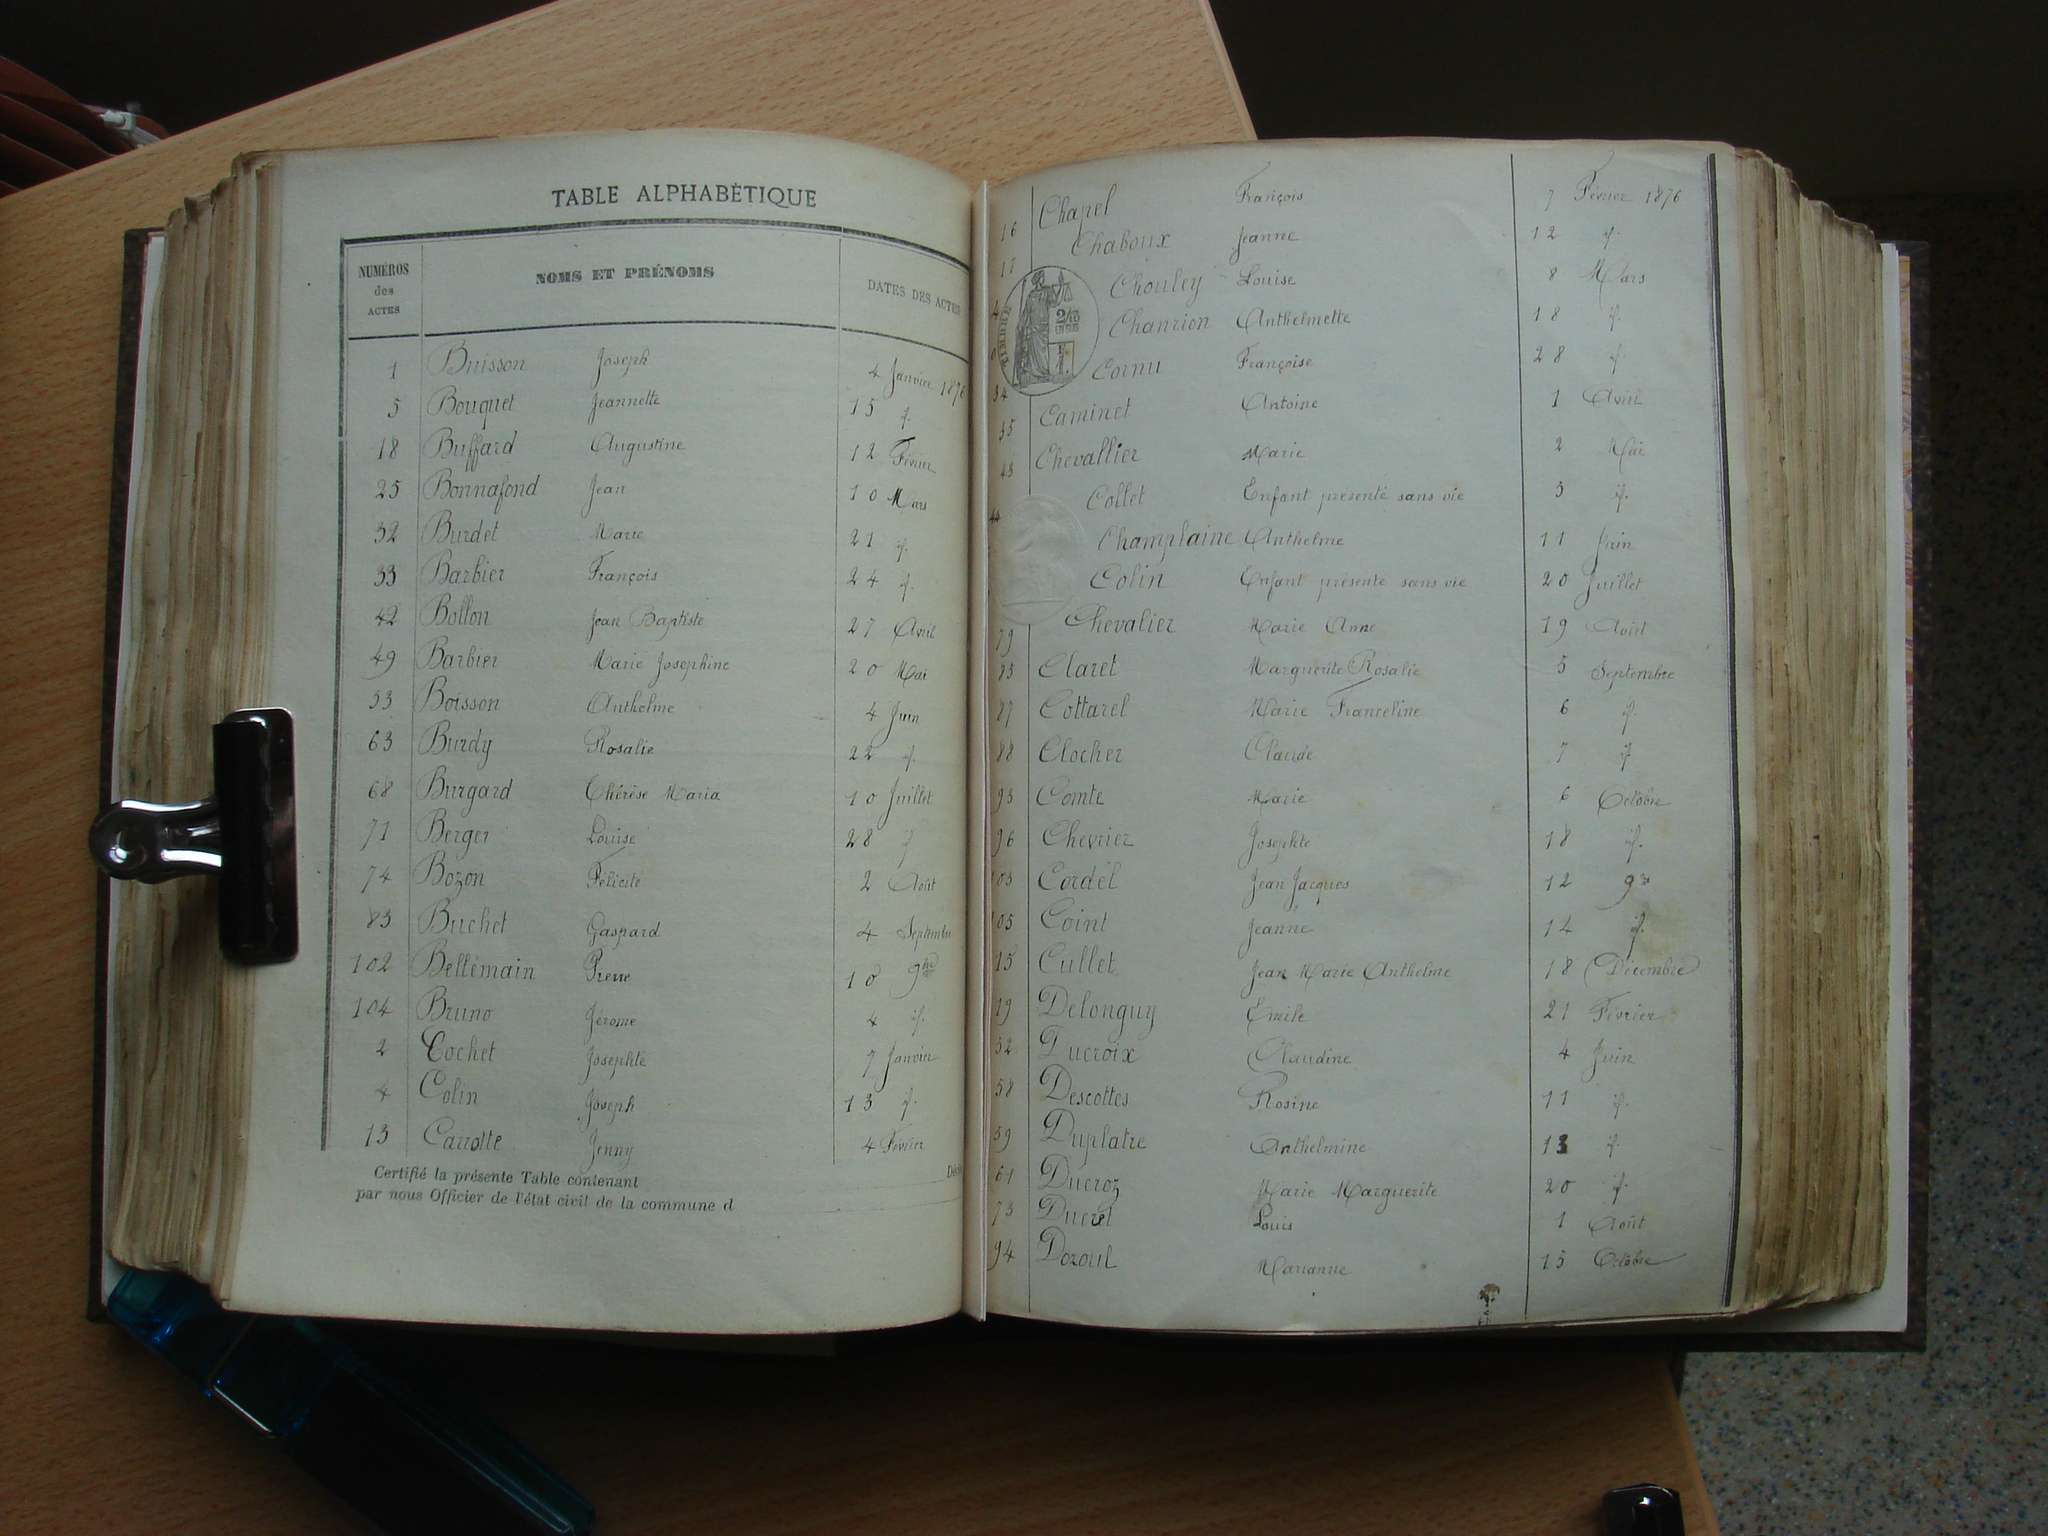 TABLE ALPHABÉTIQUE
NUMÉROS des ACTES NOMS ET PRÉNOMS DATES DES ACTES
1 Buisson Joseph 4 Janvier 1876
5 Bouquet Jeannette 15 id.
18 Buffard Augustine 12 Février
25 Bonnafond Jean 10 Mars
32 Burdet Marie 21 id.
33 Barbier François 24 id.
42 Bollon Jean Baptiste 27 Avril
49 Barbier Marie Josephine 20 Mai
53 Boisson Anthelme 4 Juin
63 Burdy Rosalie 22 id.
68 Burgard Thérèse Maria 10 Juillet
71 Berger Louise 28 id.
74 Bozon Félicité 2 Août
83 Buchet Gaspard 4 Septembre
102 Bellemain Pierre 10 9bre
104 Bruno Jérome 4 id.
2 Cochet Josephte 7 Janvier
4 Colin Joseph 13 id.
13 Carrotte Jenny 4 Février
Certifié la présente Table contenant
par nous Officier de l'état civil de la commune d
16 Chapel François 7 Février 1876
17 Chaboux Jeanne 12 id.
Chouley Louise 8 Mars
Chanrion Anthelmette 18 id.
Cornu Françoise 28 id.
34 Caminet Antoine 1 Avril
35 Chevallier Marie 2 Mai
43 Collet Enfant présenté sans vie 3 id.
44 Champlaine Anthelme 11 Juin
Colin Enfant présenté sans vie 20 Juillet
79 Chevalier Marie Anne 19 Août
85 Claret Marguerite Rosalie 5 Septembre
87 Cottarel Marie Franceline 6 id.
88 Clocher Claude 7 id.
93 Comte Marie 6 Octobre
96 Chevrier Josephte 18 id.
103 Cordel Jean Jacques 12 9re
105 Coint Jeanne 14 id.
15 Cullet Jean Marie Anthelme 18 Décembre
19 Delonguy Emile 21 Février
52 Ducroix Claudine 4 Juin
58 Descottes Rosine 11 id.
59 Duplatre Anthelmine 13 id.
61 Ducroz Marie Marguerite 20 id.
73 Ducret Louis 1 Août
94 Dozoul Marianne 15 Octobre